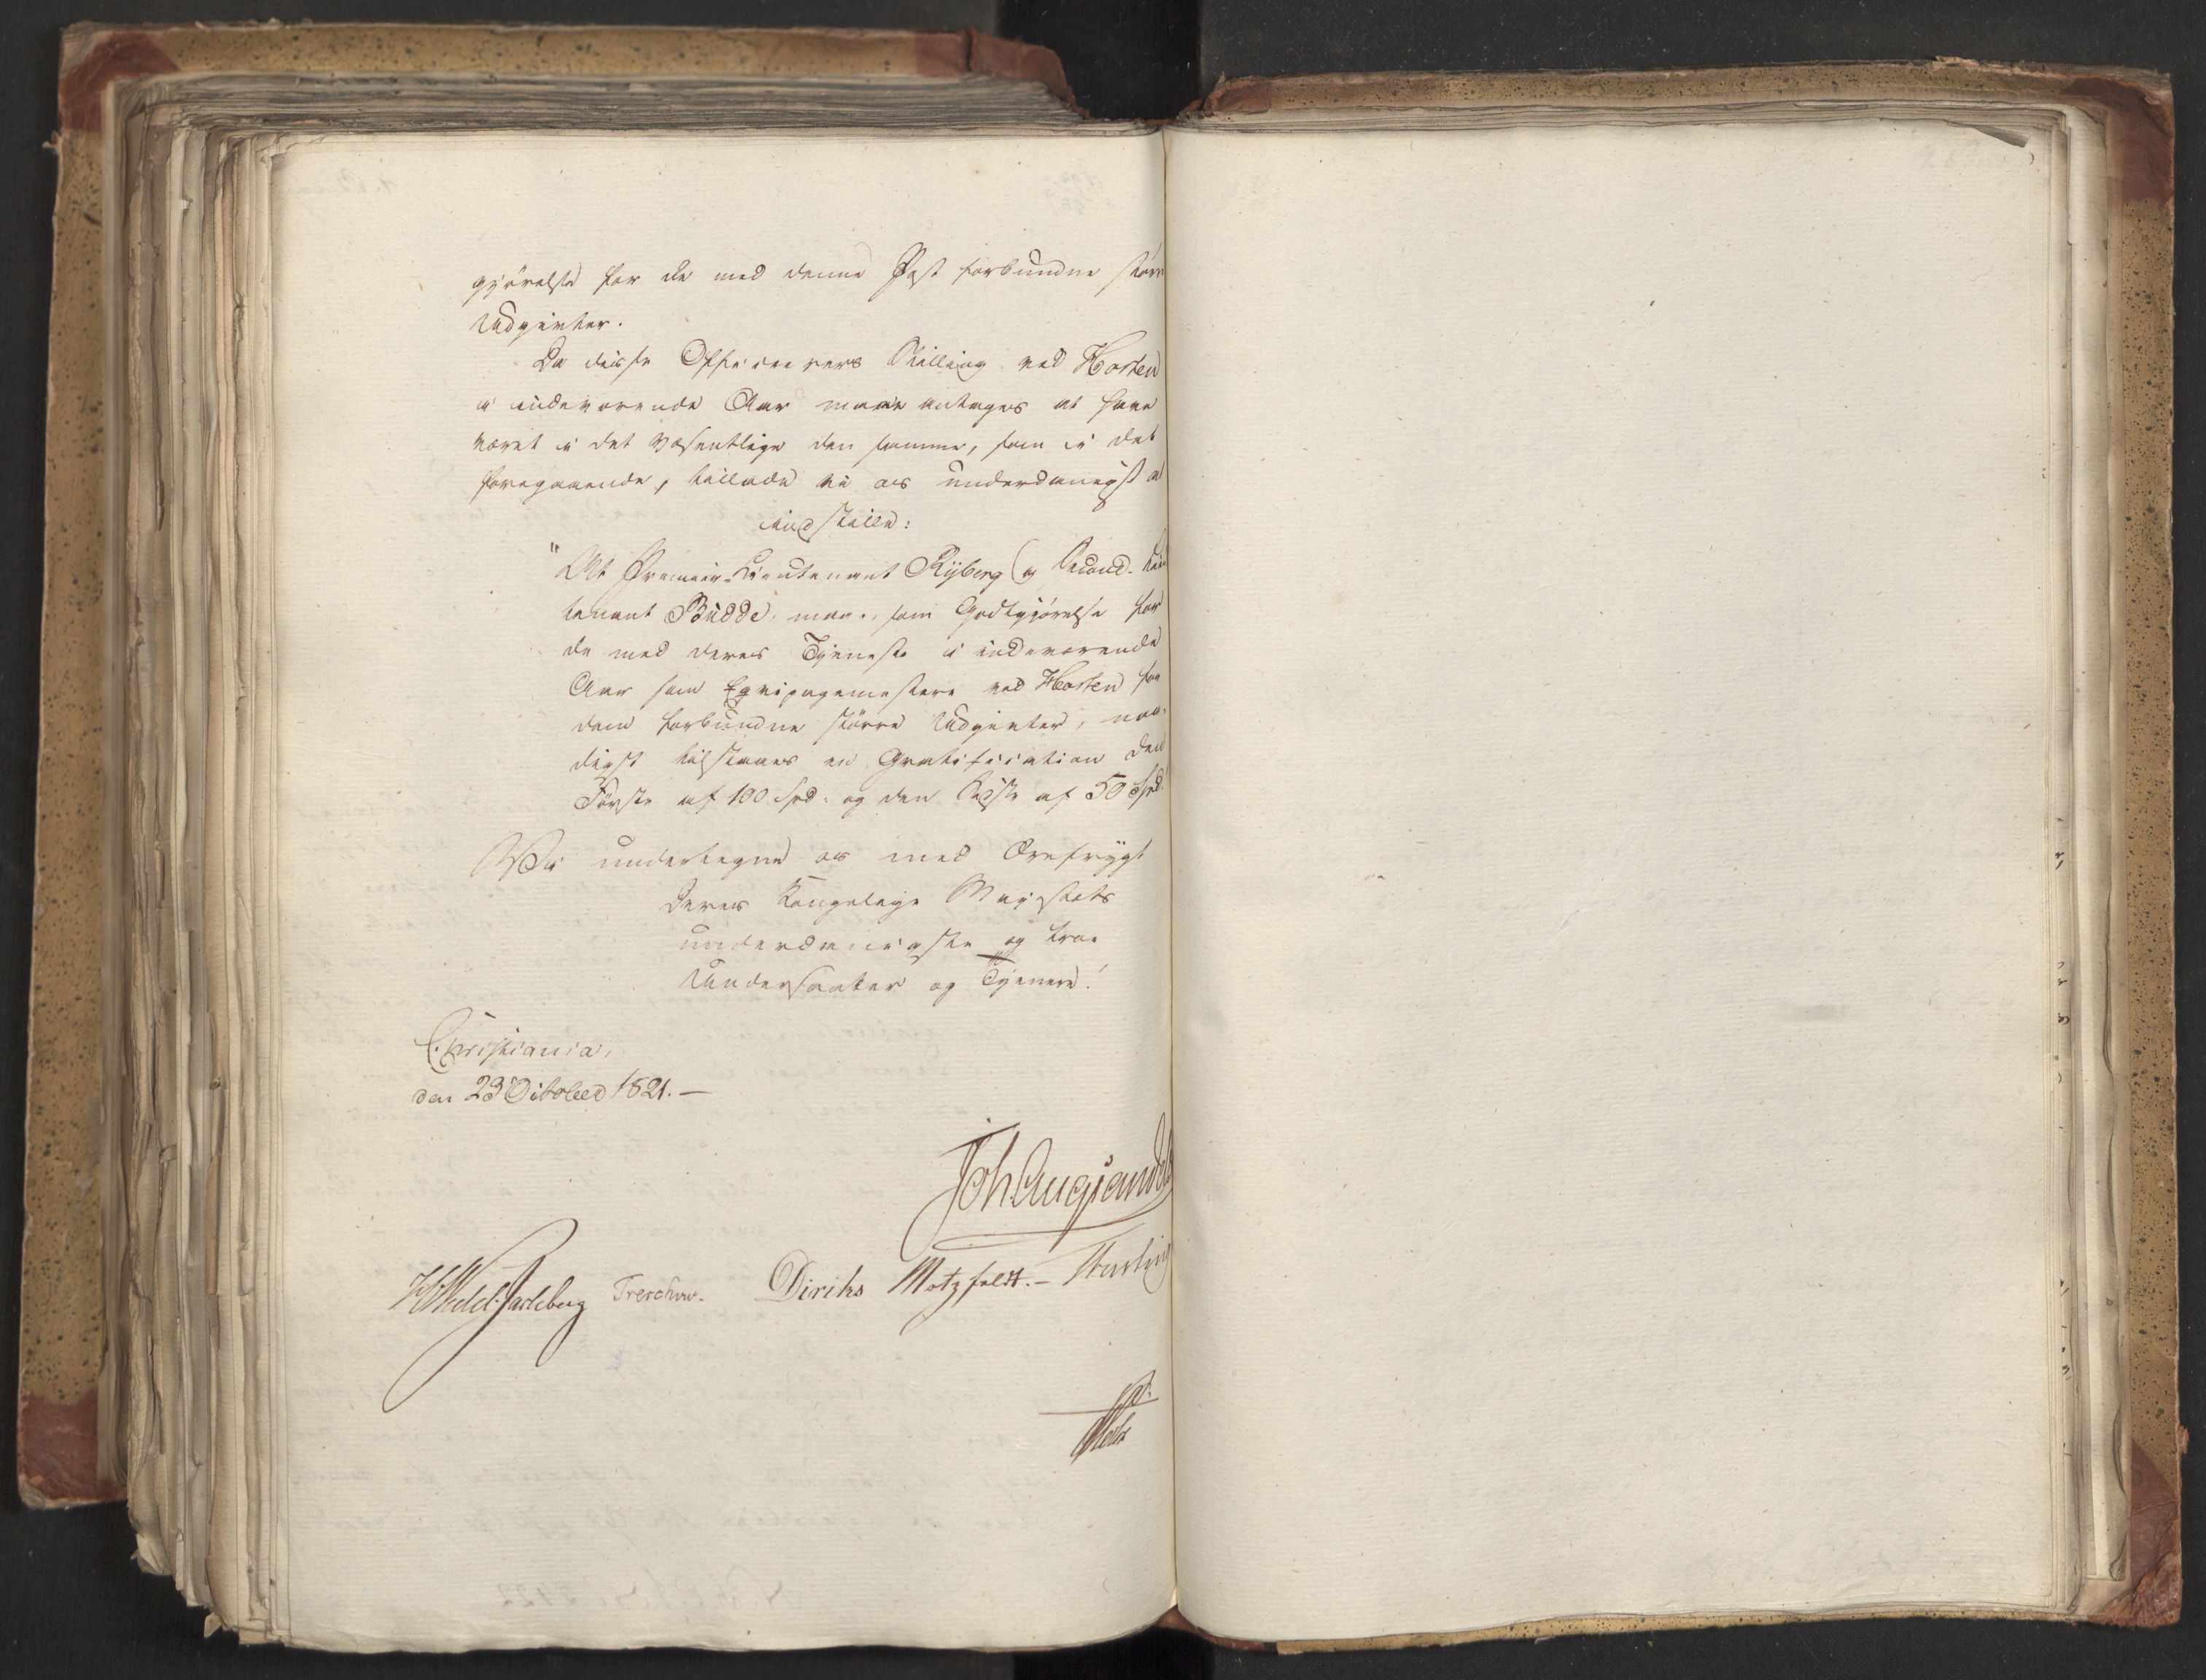 gjörelse for de med denne Post forbundne större
Udgivter.
Da disse Officierers Stilling ved Horten
i indeværende Aar maae antages at have
været i det Væsentlige den samme, som i det
foregaaende, tillade vi os underdanigst at
indstille:
"At Premier-Lieutenant Ryberg og Second-Lieu
tenant Budde, maae, som Godtgjörelse for
de med deres Tjeneste i indeværende
Aar som Eqvipagemestere ved Horten for
dem forbundne större Udgivter, naa-
digst tilstaaes en Gratification den
Förste af 100 Spd: og den Sidste af 50 Spd:
Vi undertegne os med Ærefrygt
Deres Kongelige Majestæts
underdanigste og troe
Undersaatter og Tjenere!
Christiania,
den 23 October 1821.—
Joh. Aug. Sandels
HWedel-Jarlsberg Treschow. Diriks Motzfeldt.—